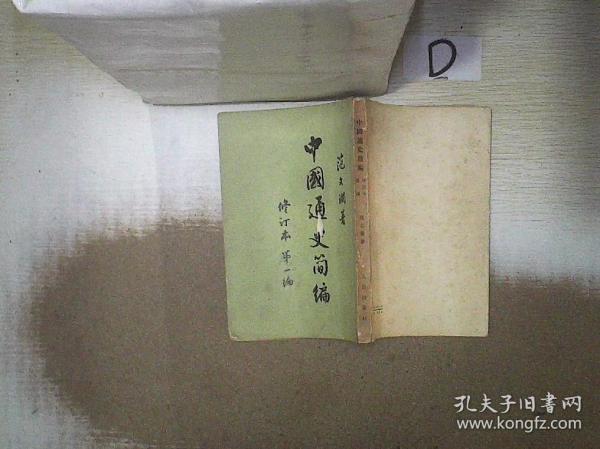 D
范文瀾著
中國通史简编
修订本 第一编
中國通史簡編
孔夫子旧书网
www.kongfz.com